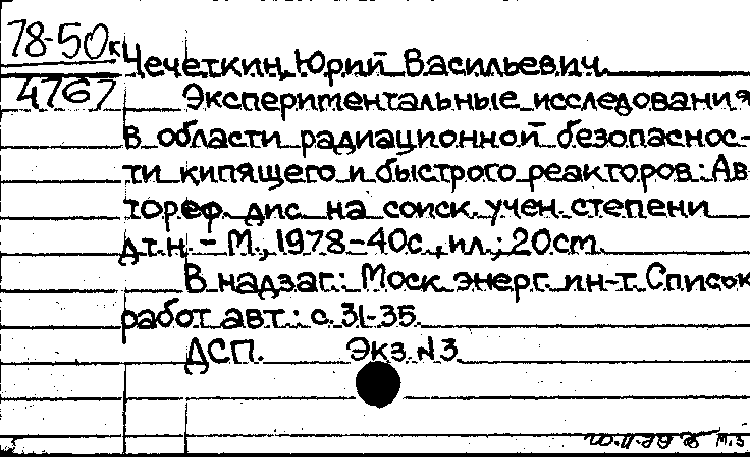 78-50к
4767
Чечеткин, Юрий Васильевич.
Экспериментальные исследования
в области радиационной безопаснос-
ти кипящего и быстрого реакторов: Ав-
тореф. дис. на соиск. учен. степени
д.т.н. - М., 1978-40с., ил.; 20см.
В надзаг.: Моск. энерг. ин-т. Список
работ авт.: с. 31-35.
ДСП. Экз. №3